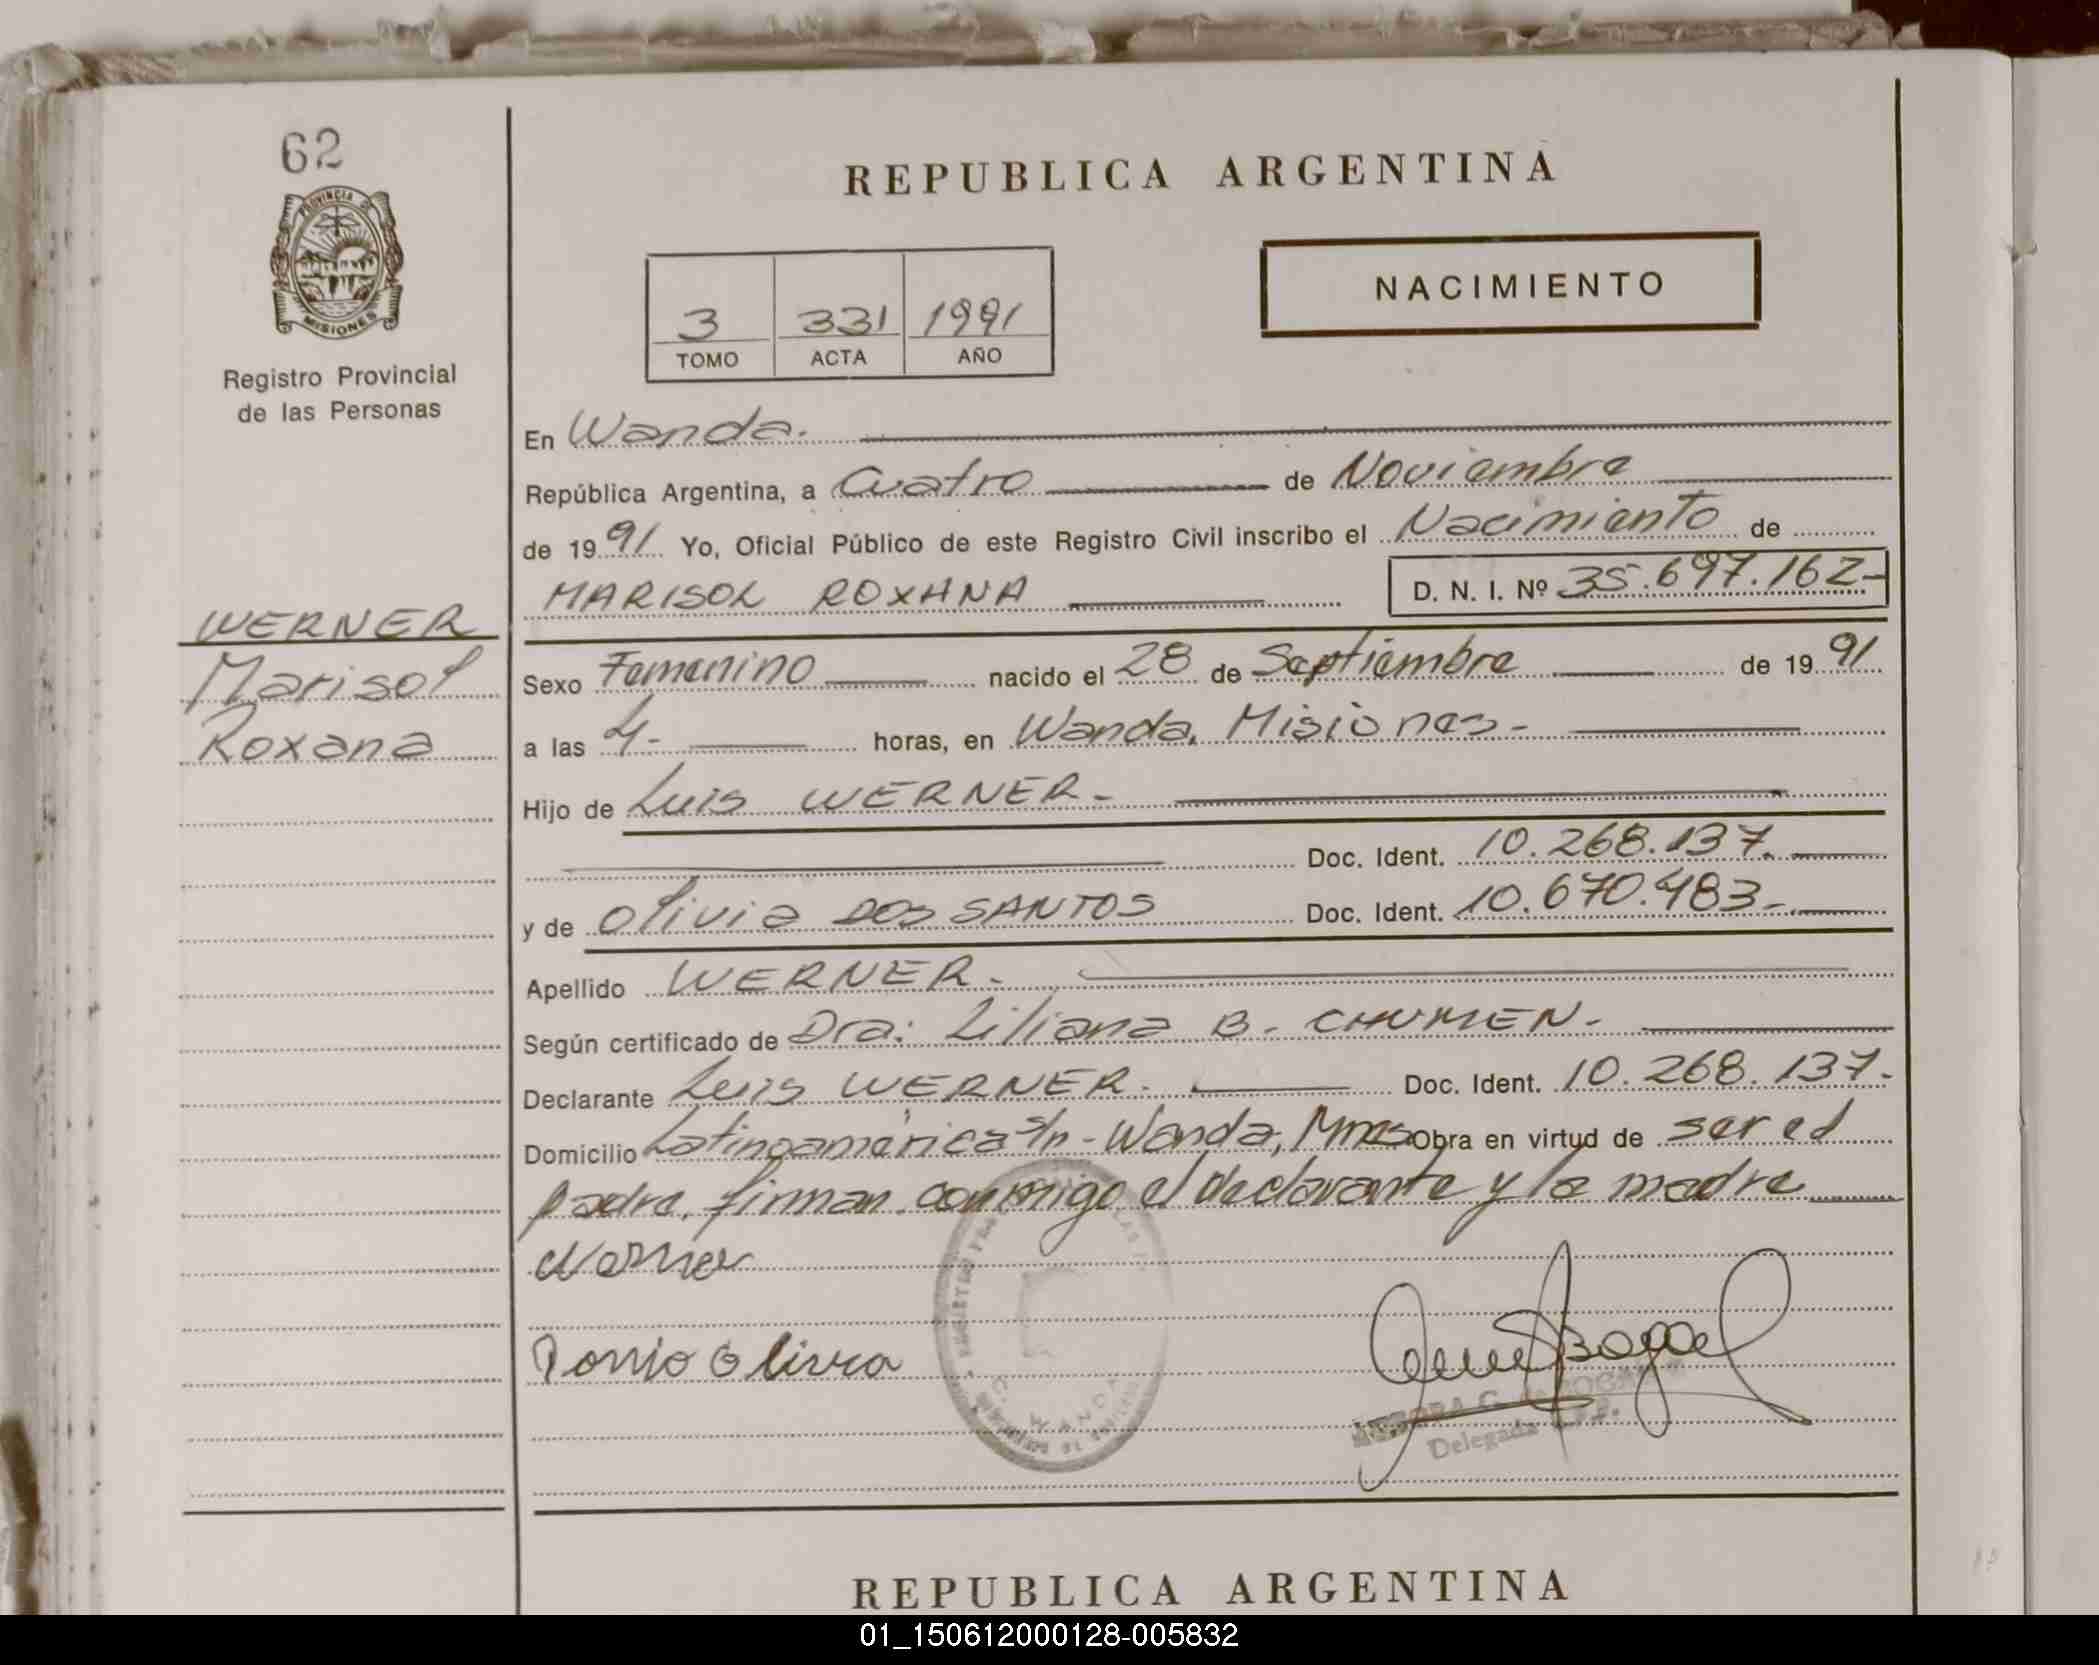 62
PROVINCIA DE
MISIONES
Registro Provincial
de las Personas
WERNER
Marisol
Roxana
REPUBLICA ARGENTINA
3 331 1991
TOMO ACTA AÑO
NACIMIENTO
En Wanda.
República Argentina, a Cuatro de Noviembre
de 1991 Yo, Oficial Público de este Registro Civil inscribo el Nacimiento de
MARISOL ROXANA D. N. I. Nº 35.697.162-
Sexo Femenino nacido el 28 de Septiembre de 1991
a las 4- horas, en Wanda, Misiones-
Hijo de Luis WERNER-
Doc. Ident. 10.268.137.
y de Olivia DOS SANTOS Doc. Ident. 10.670.483-
Apellido WERNER-
Según certificado de Dra: Liliana B. CHUMEN-
Declarante Luis WERNER. Doc. Ident. 10.268.137-
Domicilio Latinoamérica s/n - Wanda, Mnes Obra en virtud de ser el
padre, firman conmigo el declarante y la madre
Werner
Olivia
WANDA
Delegada
REPUBLICA ARGENTINA
01_150612000128-005832